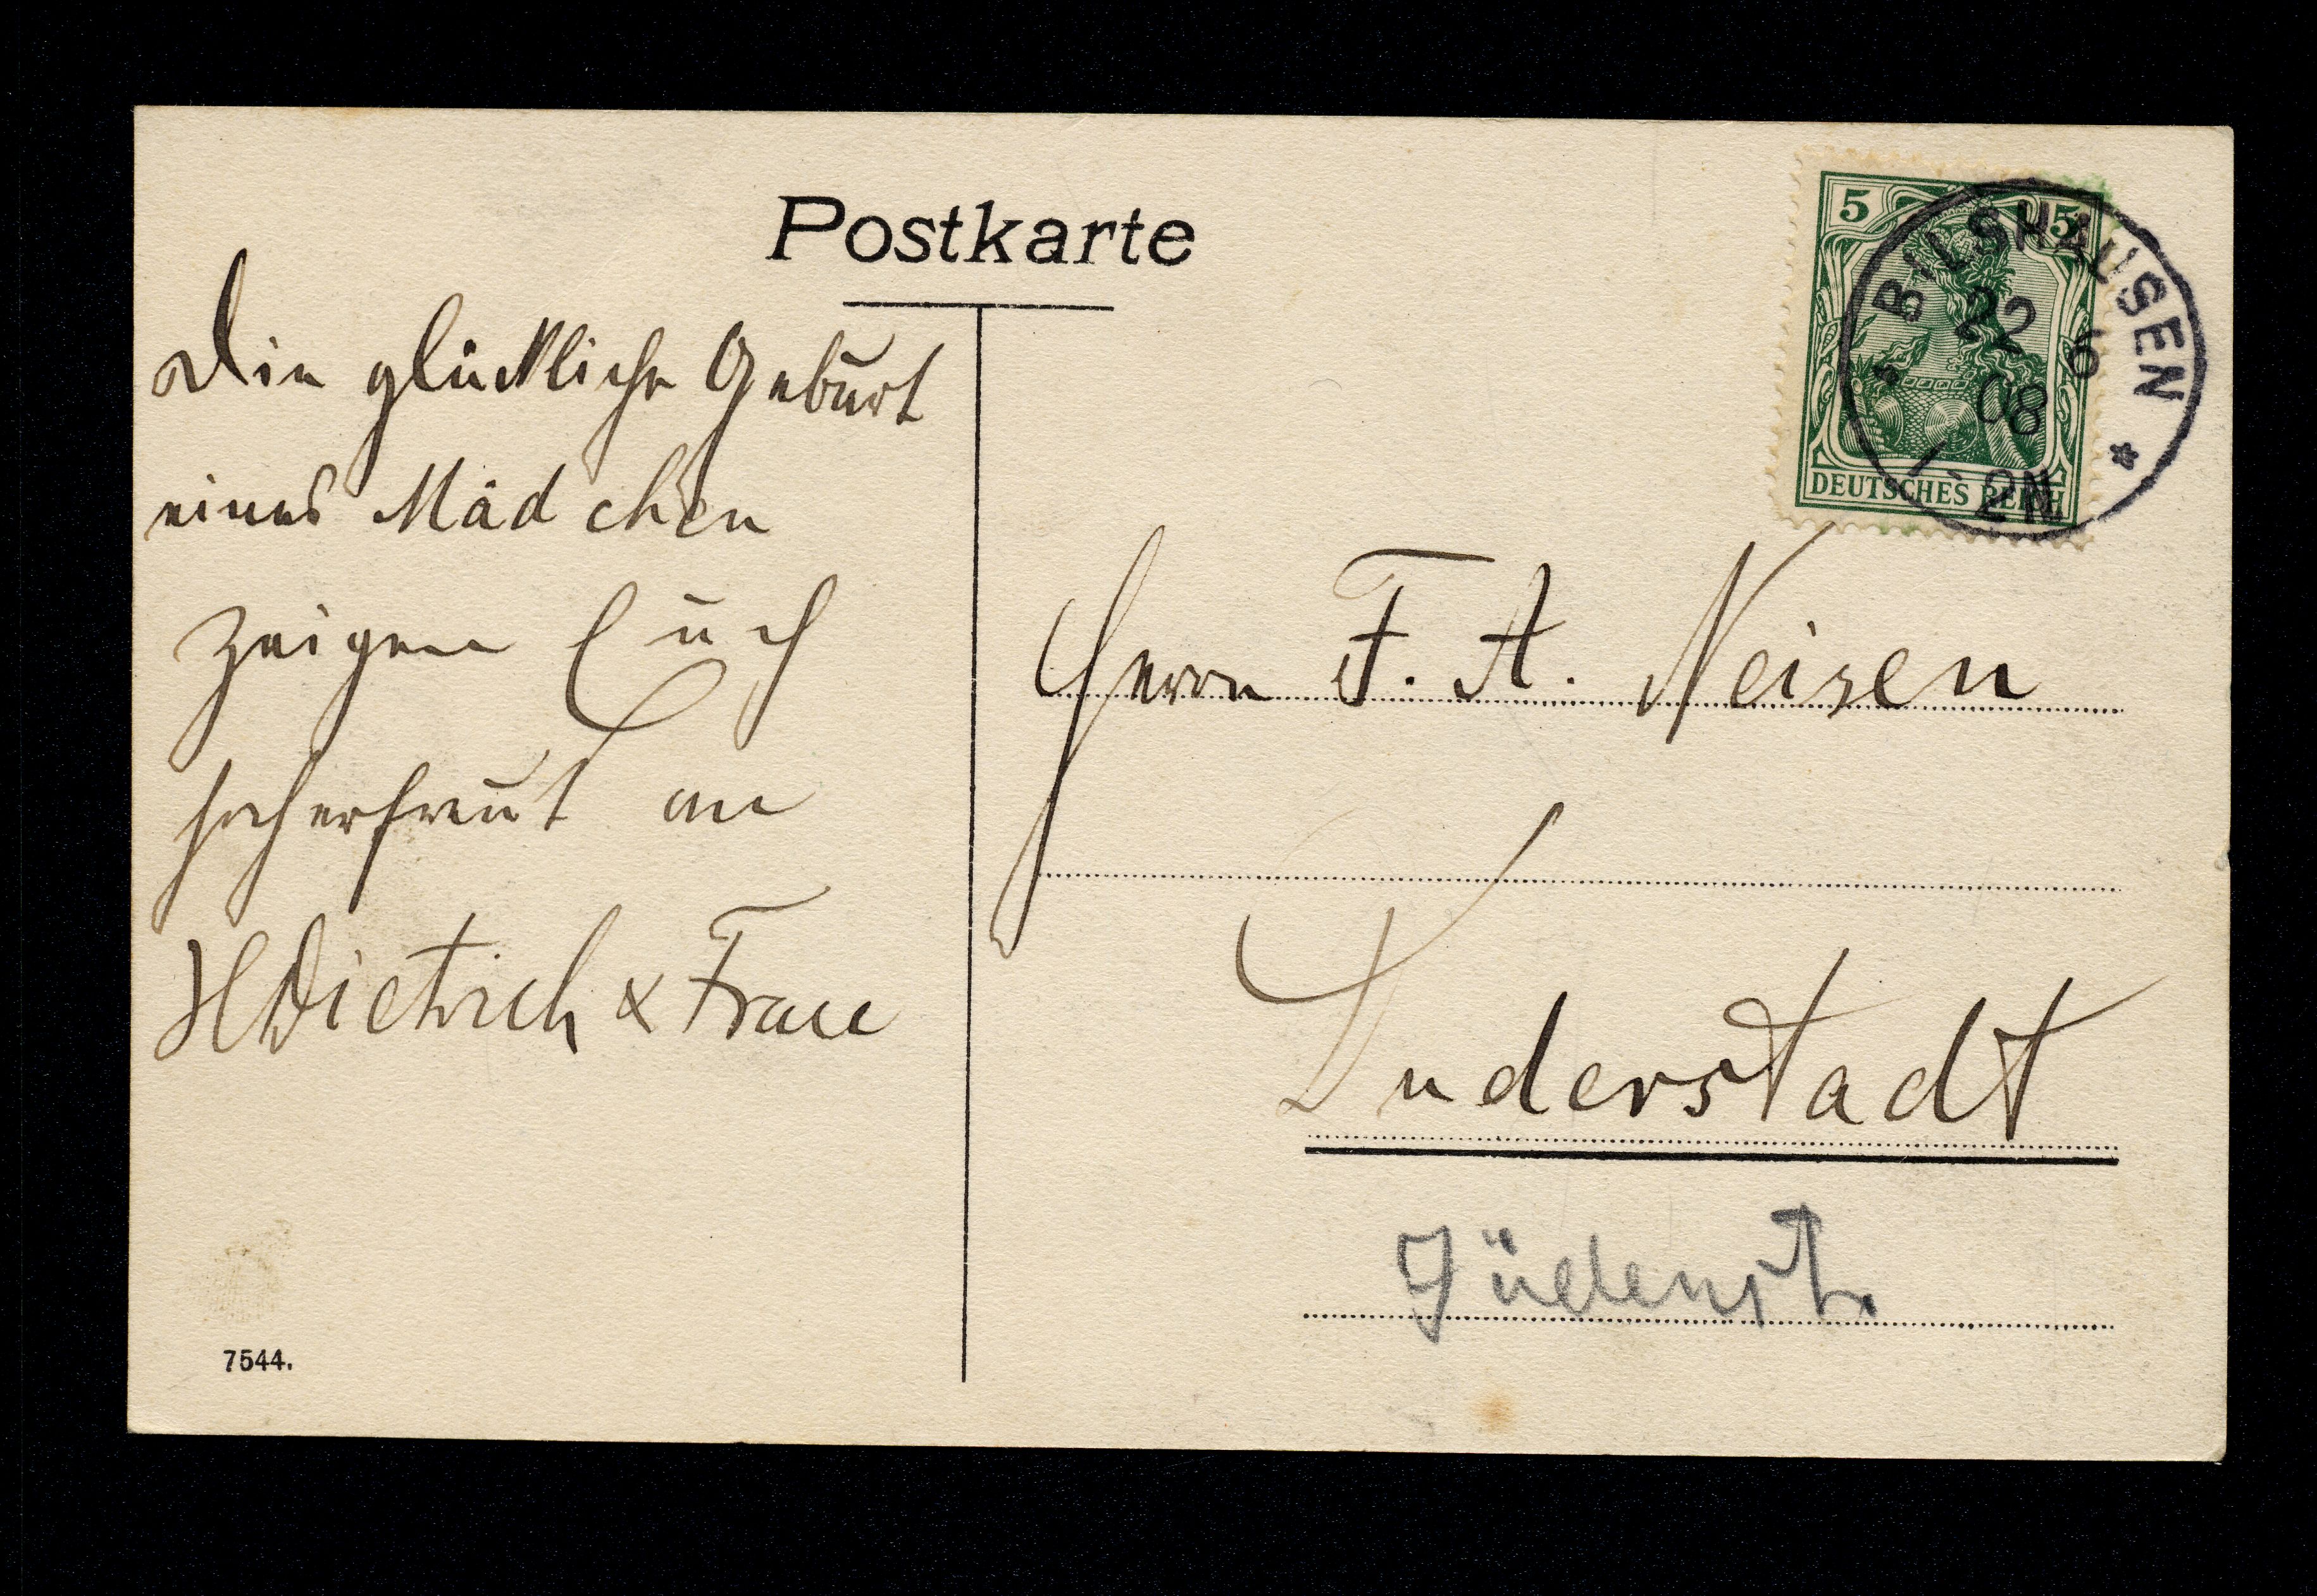 Postkarte
Die glückliche Geburt
eines Mädchen
zeigen Euch
hocherfreut an
H Dietrich & Frau
7544.
5 5
DEUTSCHES REICH
BILSHAUSEN
22 6
08
1-2N
*
Herrn F. A. Neisen
Duderstadt
Jüdenstr.